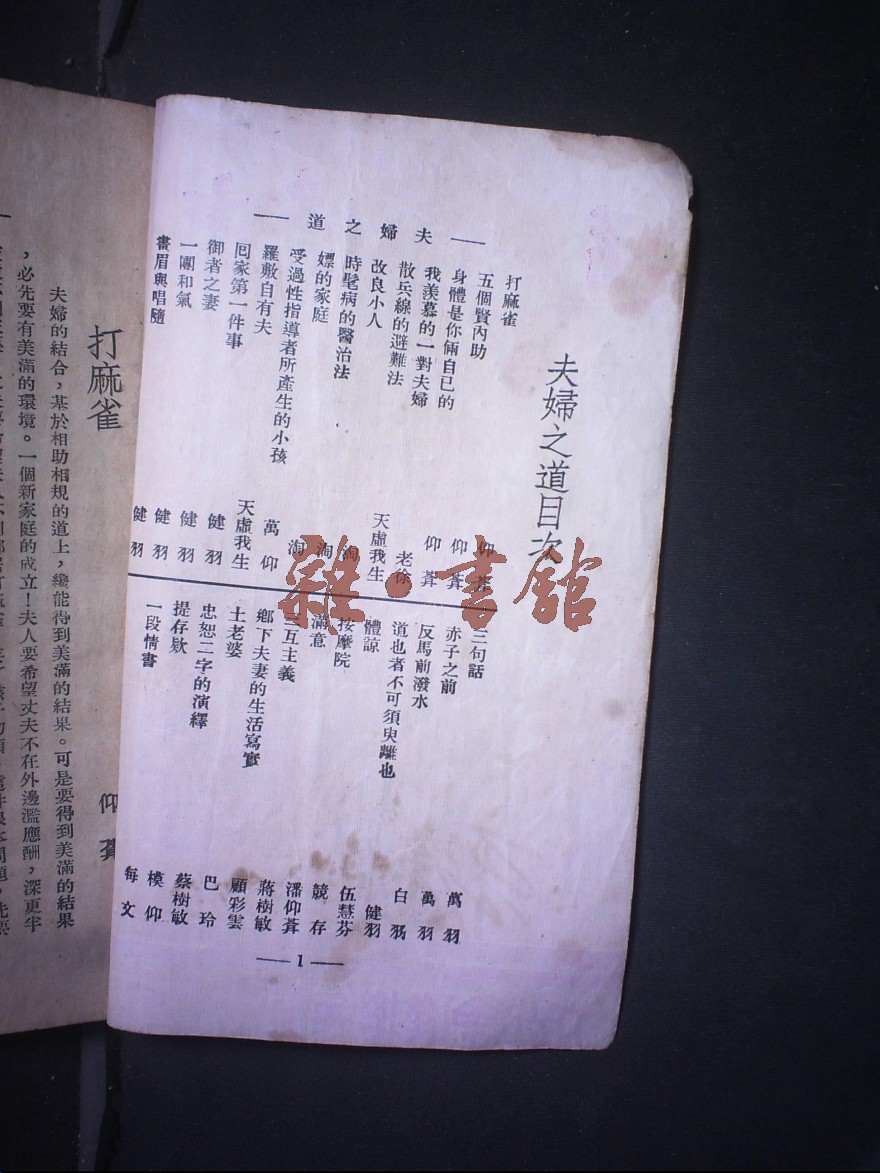 夫婦之道目次
—夫婦之道—
打麻雀 仰葊
五個賢內助 仰葊
身體是你倆自已的 仰葊
我羨慕的一對夫婦 老徐
散兵線的避難法 天虛我生
改良小人
時髦病的醫治法 淘
嫖的家庭 淘
受過性指導者所產生的小孩 萬仰
羅敷自有夫 天虛我生
回家第一件事 健羽
御者之妻 健羽
一團和氣 健羽
畫眉與唱隨 健羽
三句話 萬羽
赤子之前 萬羽
反馬前潑水 白羽
道也者不可須臾離也 健羽
體諒 伍慧芬
按摩院 競存
滿意 潘仰葊
三互主義 蔣樹敏
鄉下夫妻的生活寫實 顧彩雲
土老婆 巴玲
忠恕二字的演繹 蔡樹敏
提存欵 模仰
一段情書 每文
—1—
打麻雀
仰葊
夫婦的結合，基於相助相規的道上，纔能得到美滿的結果。可是要得到美滿的結果
，必先要有美滿的環境。一個新家庭的成立！夫人要希望丈夫不在外邊濫應酬，深更半
雜·書館